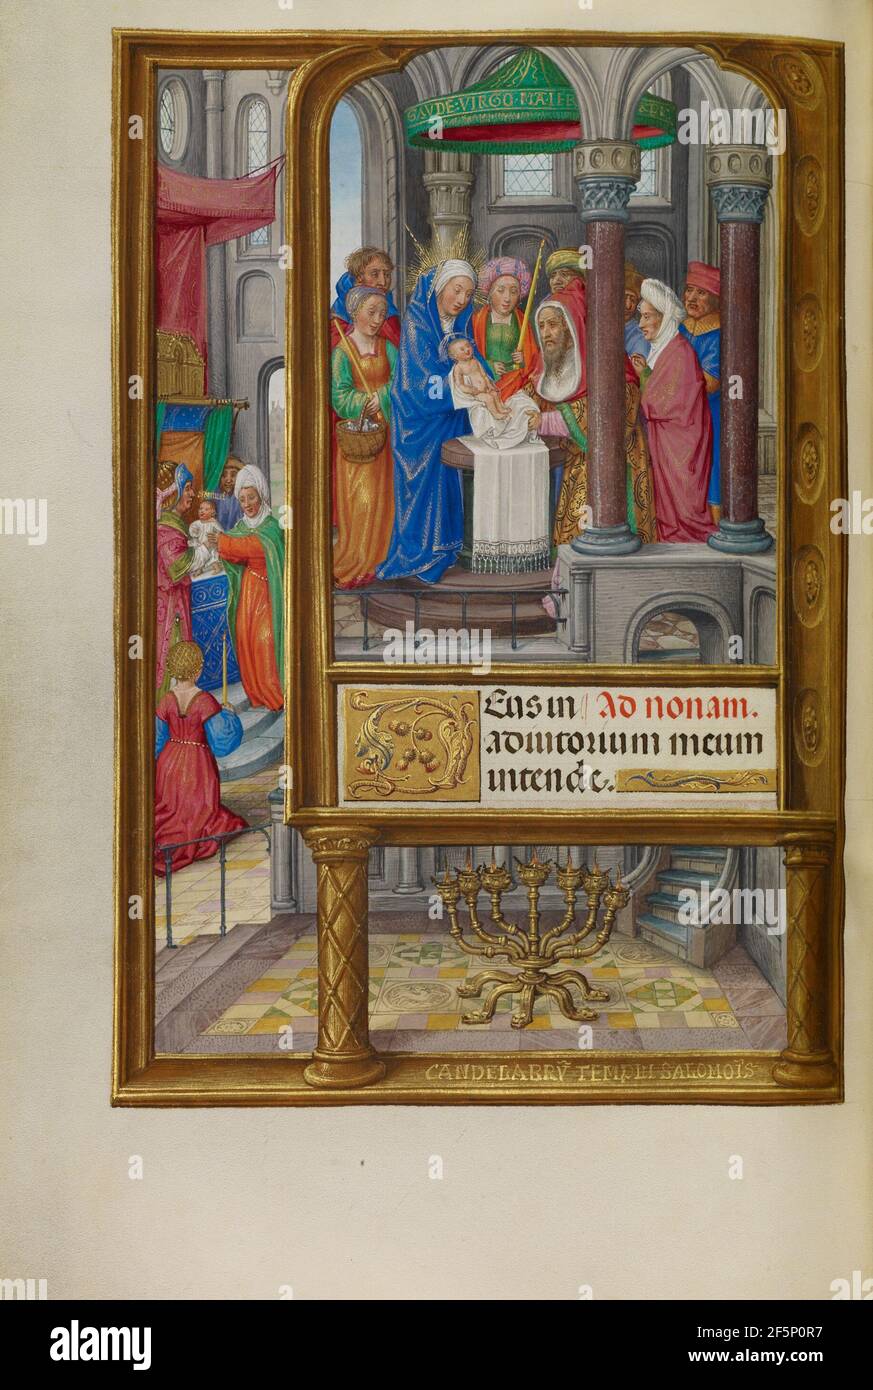 GAVDE·VIRGO·MATER
Eus in Ad nonam.
adiutorium meum
intende.
CANDELABRṼ TEMPLI SALOMOĨS
alamy
Image ID: 2F5P0R7
www.alamy.com